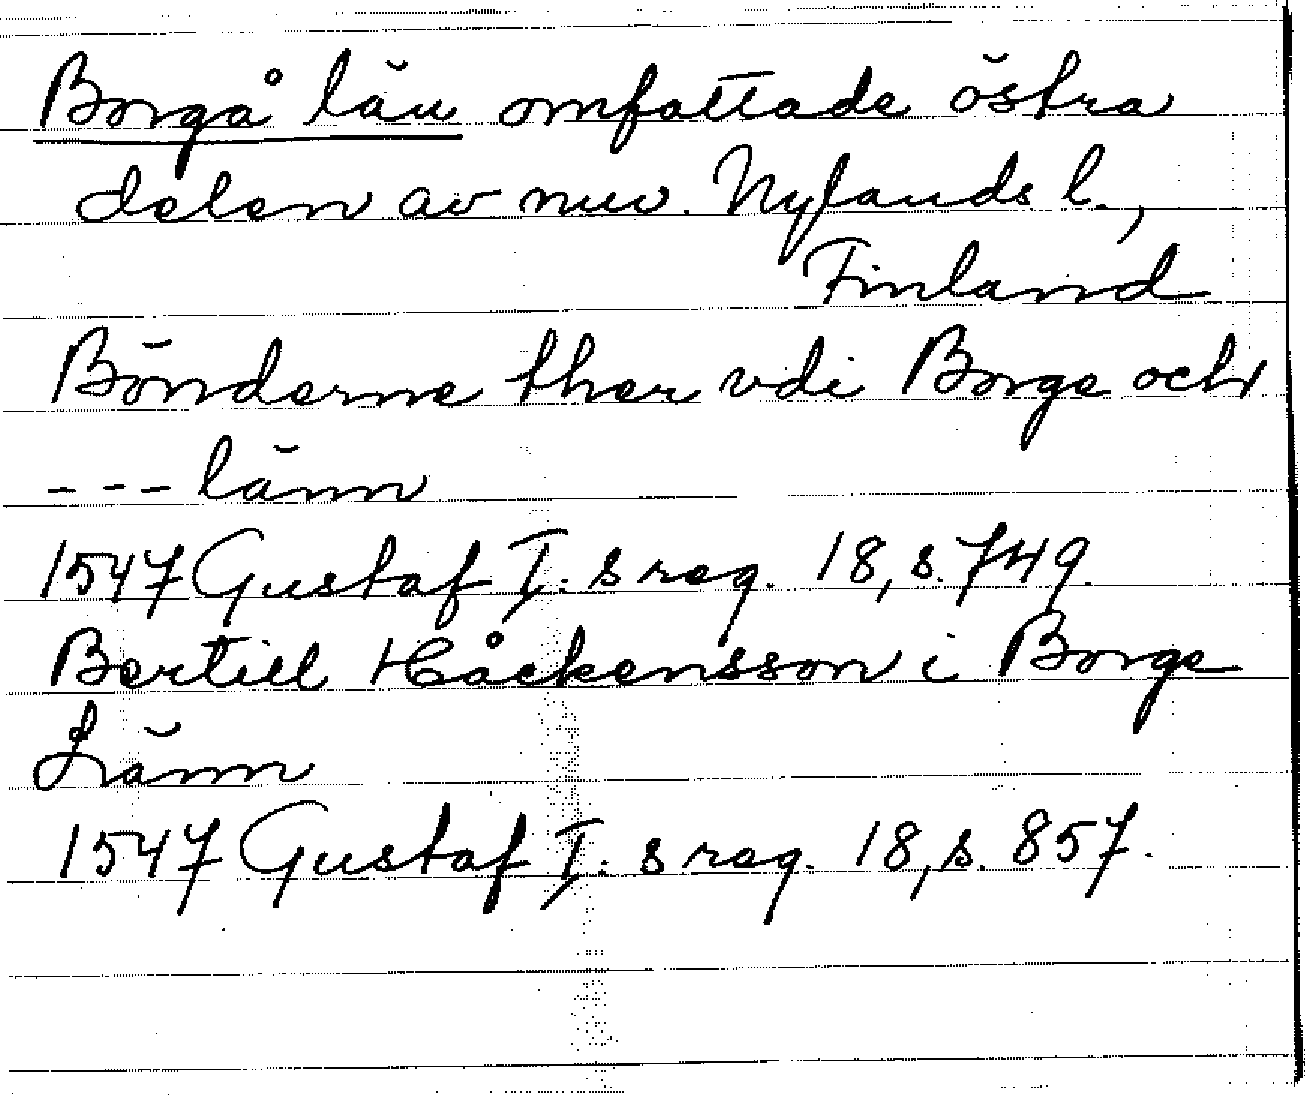 Borgå län omfattade östra
delen av nuv. Nylands l.,
Finland
Bönderne ther vdi Borge och
--- länn
1547 Gustaf I:s reg. 18, s. 749.
Bertill Håckensson i Borge
Länn
1547 Gustaf I:s reg. 18, s. 857.